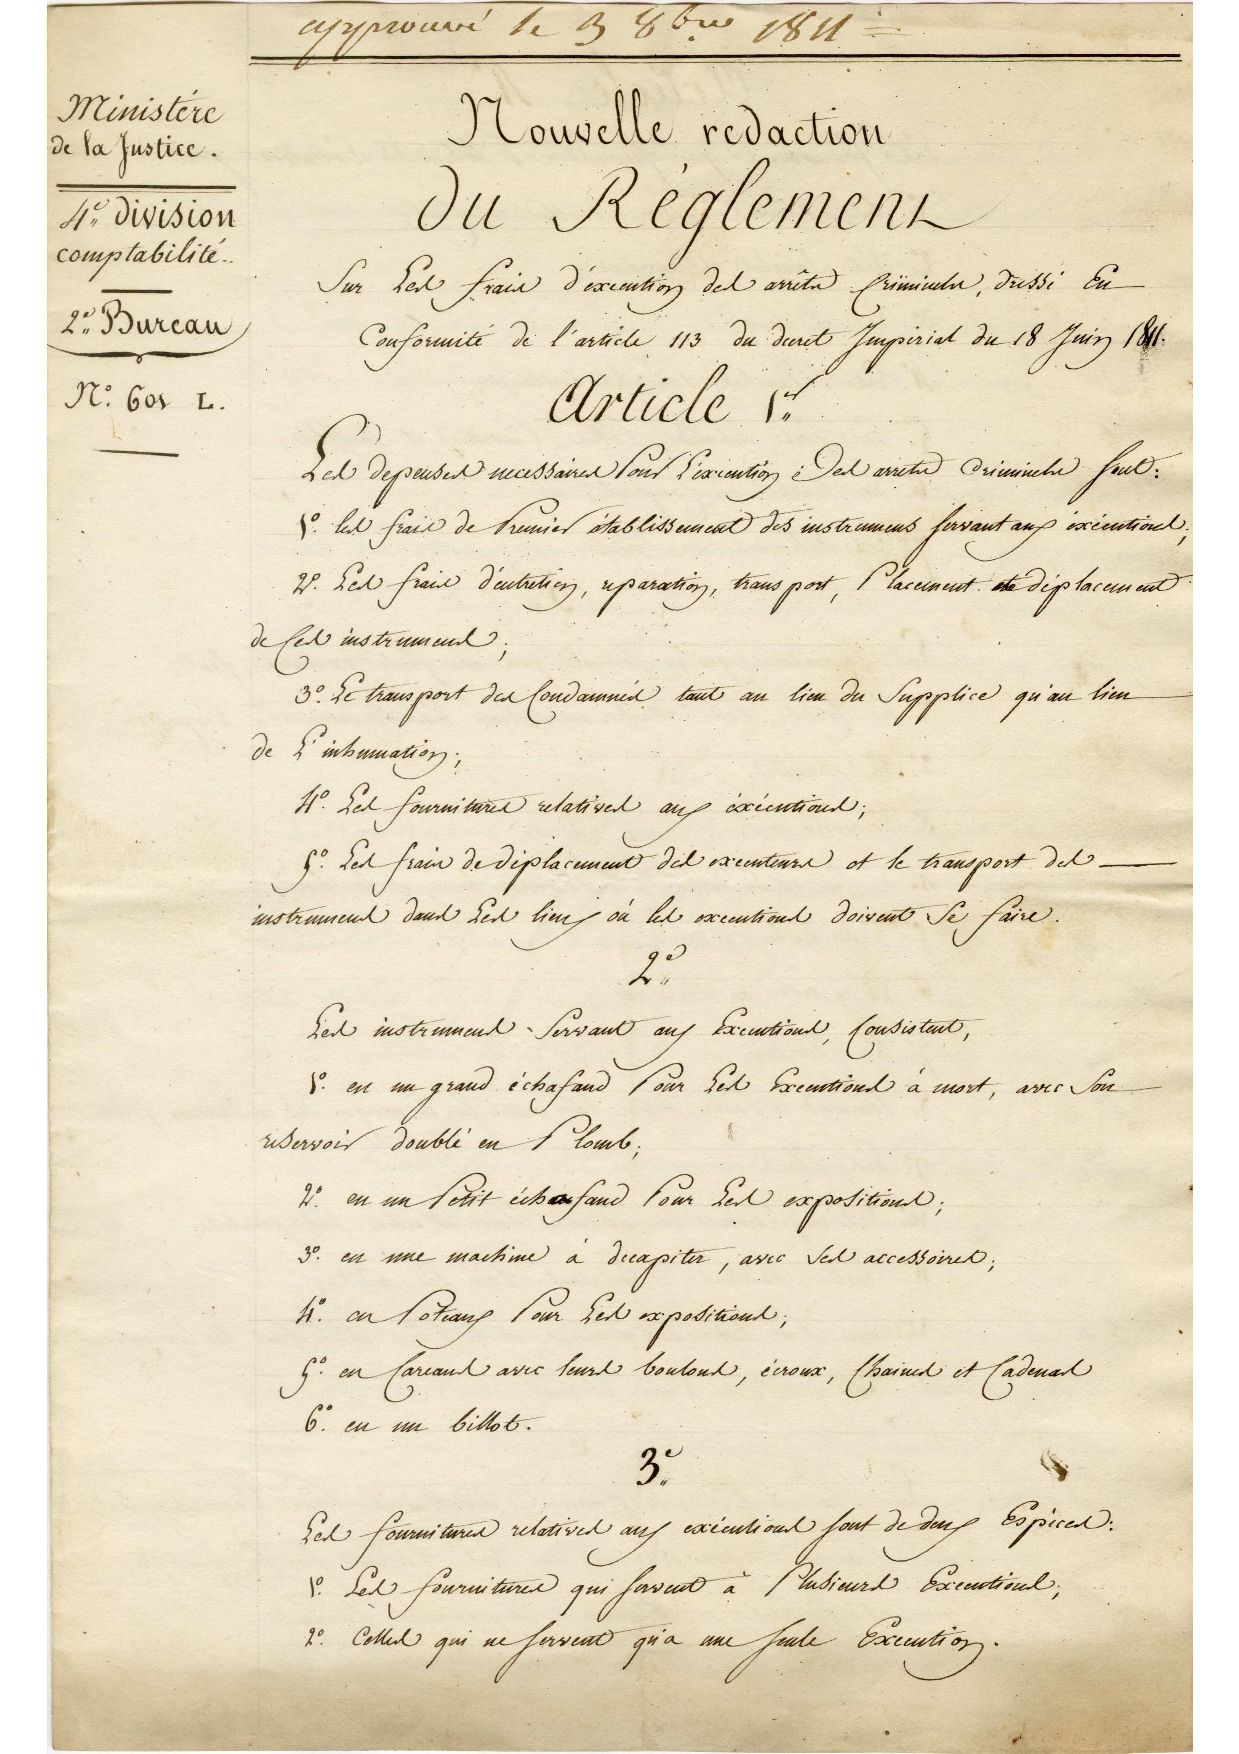 approuvé le 3 8bre 1811
Ministére
de la Justice.
4e. division
comptabilité.
2e. Bureau
No. 601 L.
Nouvelle redaction
du Réglement
Sur Les frais d'éxecution des arrêts Criminels, dressé En
Conformité de l'article 113 du decret Impérial du 18 Juin 1811.
Article 1er.
Les depenses necessaires Pour L'éxecution des arrets Criminels sont:
1o. les frais de Premier établissement des instrumens servant aux éxécutions;
2o. Les frais d'entretien, reparation, transport, Placement et déplacement
de Ces instrumens;
3o. Le transport des Condamnés tant au lieu du Supplice qu'au lieu
de L'inhumation;
4o. Les fournitures relatives aux éxécutions;
5o. Les frais de déplacement des executeurs et le transport des
instrumens dans Les lieux où les executions doivent Se faire.
2e.
Les instrumens Servant aux Executions, Consistent,
1o. en un grand échafaud Pour Les Executions à mort, avec Son
reservoir doublé en Plomb;
2o. en un Petit échafaud Pour Les expositions;
3o. en une machine à decapiter, avec Ses accessoires;
4o. en Poteaux Pour Les expositions;
5o. en Carcans avec leurs boulons, écroux, Chaines et Cadenas
6o. en un billot.
3e.
Les fournitures relatives aux exécutions sont de deux Espéces:
1o. Les fournitures qui servent à Plusieurs Executions;
2o. Celles qui ne servent qu'a une seule Execution.